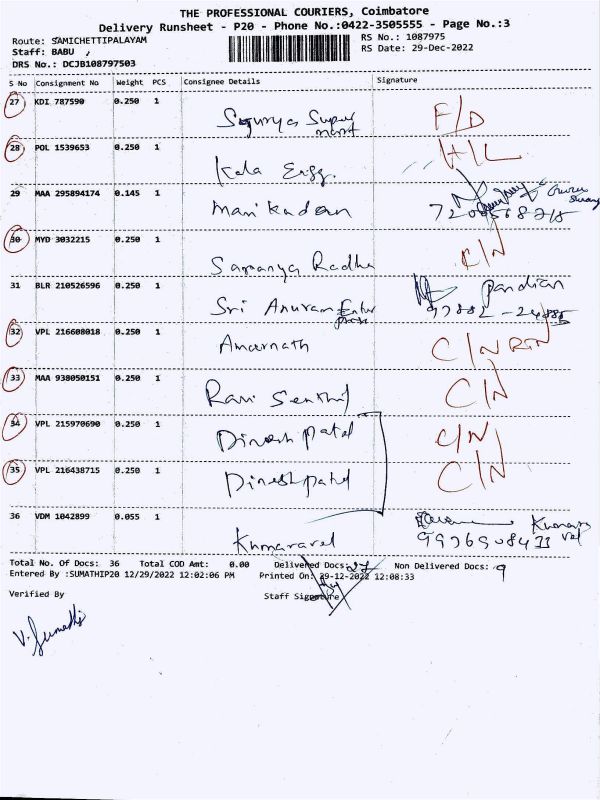 THE PROFESSIONAL COURIERS, Coimbatore
Delivery Runsheet - P20 - Phone No.:0422-3505555 - Page No.:3
Route: SAMICHETTIPALAYAM
RS No.: 1087975
Staff: BABU
RS Date: 29-Dec-2022
DRS No.: DCJB108797503
S No Consignment No Weight PCS Consignee Details Signature
27 KDI 787590 0.250 1 F/D
Super
mart
28 POL 1539653 0.250 1 H/L
Kala Engg.
29 MAA 295894174 0.145 1
Manikadan
30 MYD 3032215 0.250 1 C/N
Saranya Radha
31 BLR 210526596 0.250 1 Pandian
Sri Anuram Enter
prise
32 VPL 216608018 0.250 1
Amarnath C/N RTN
33 MAA 938050151 0.250 1 C/N
Ravi Senthil
34 VPL 215970690 0.250 1 Dinesh patel C/N
35 VPL 216438715 0.250 1 C/N
Dinesh patel
36 VDM 1042899 0.055 1 Kumara
vel
Kumaravel 9976908433
Total No. Of Docs: 36 Total COD Amt: 0.00 Delivered Docs: 27 Non Delivered Docs: 9
Entered By :SUMATHIP20 12/29/2022 12:02:06 PM Printed On: 29-12-2022 12:08:33
Verified By Staff Signature
V. Sumathi